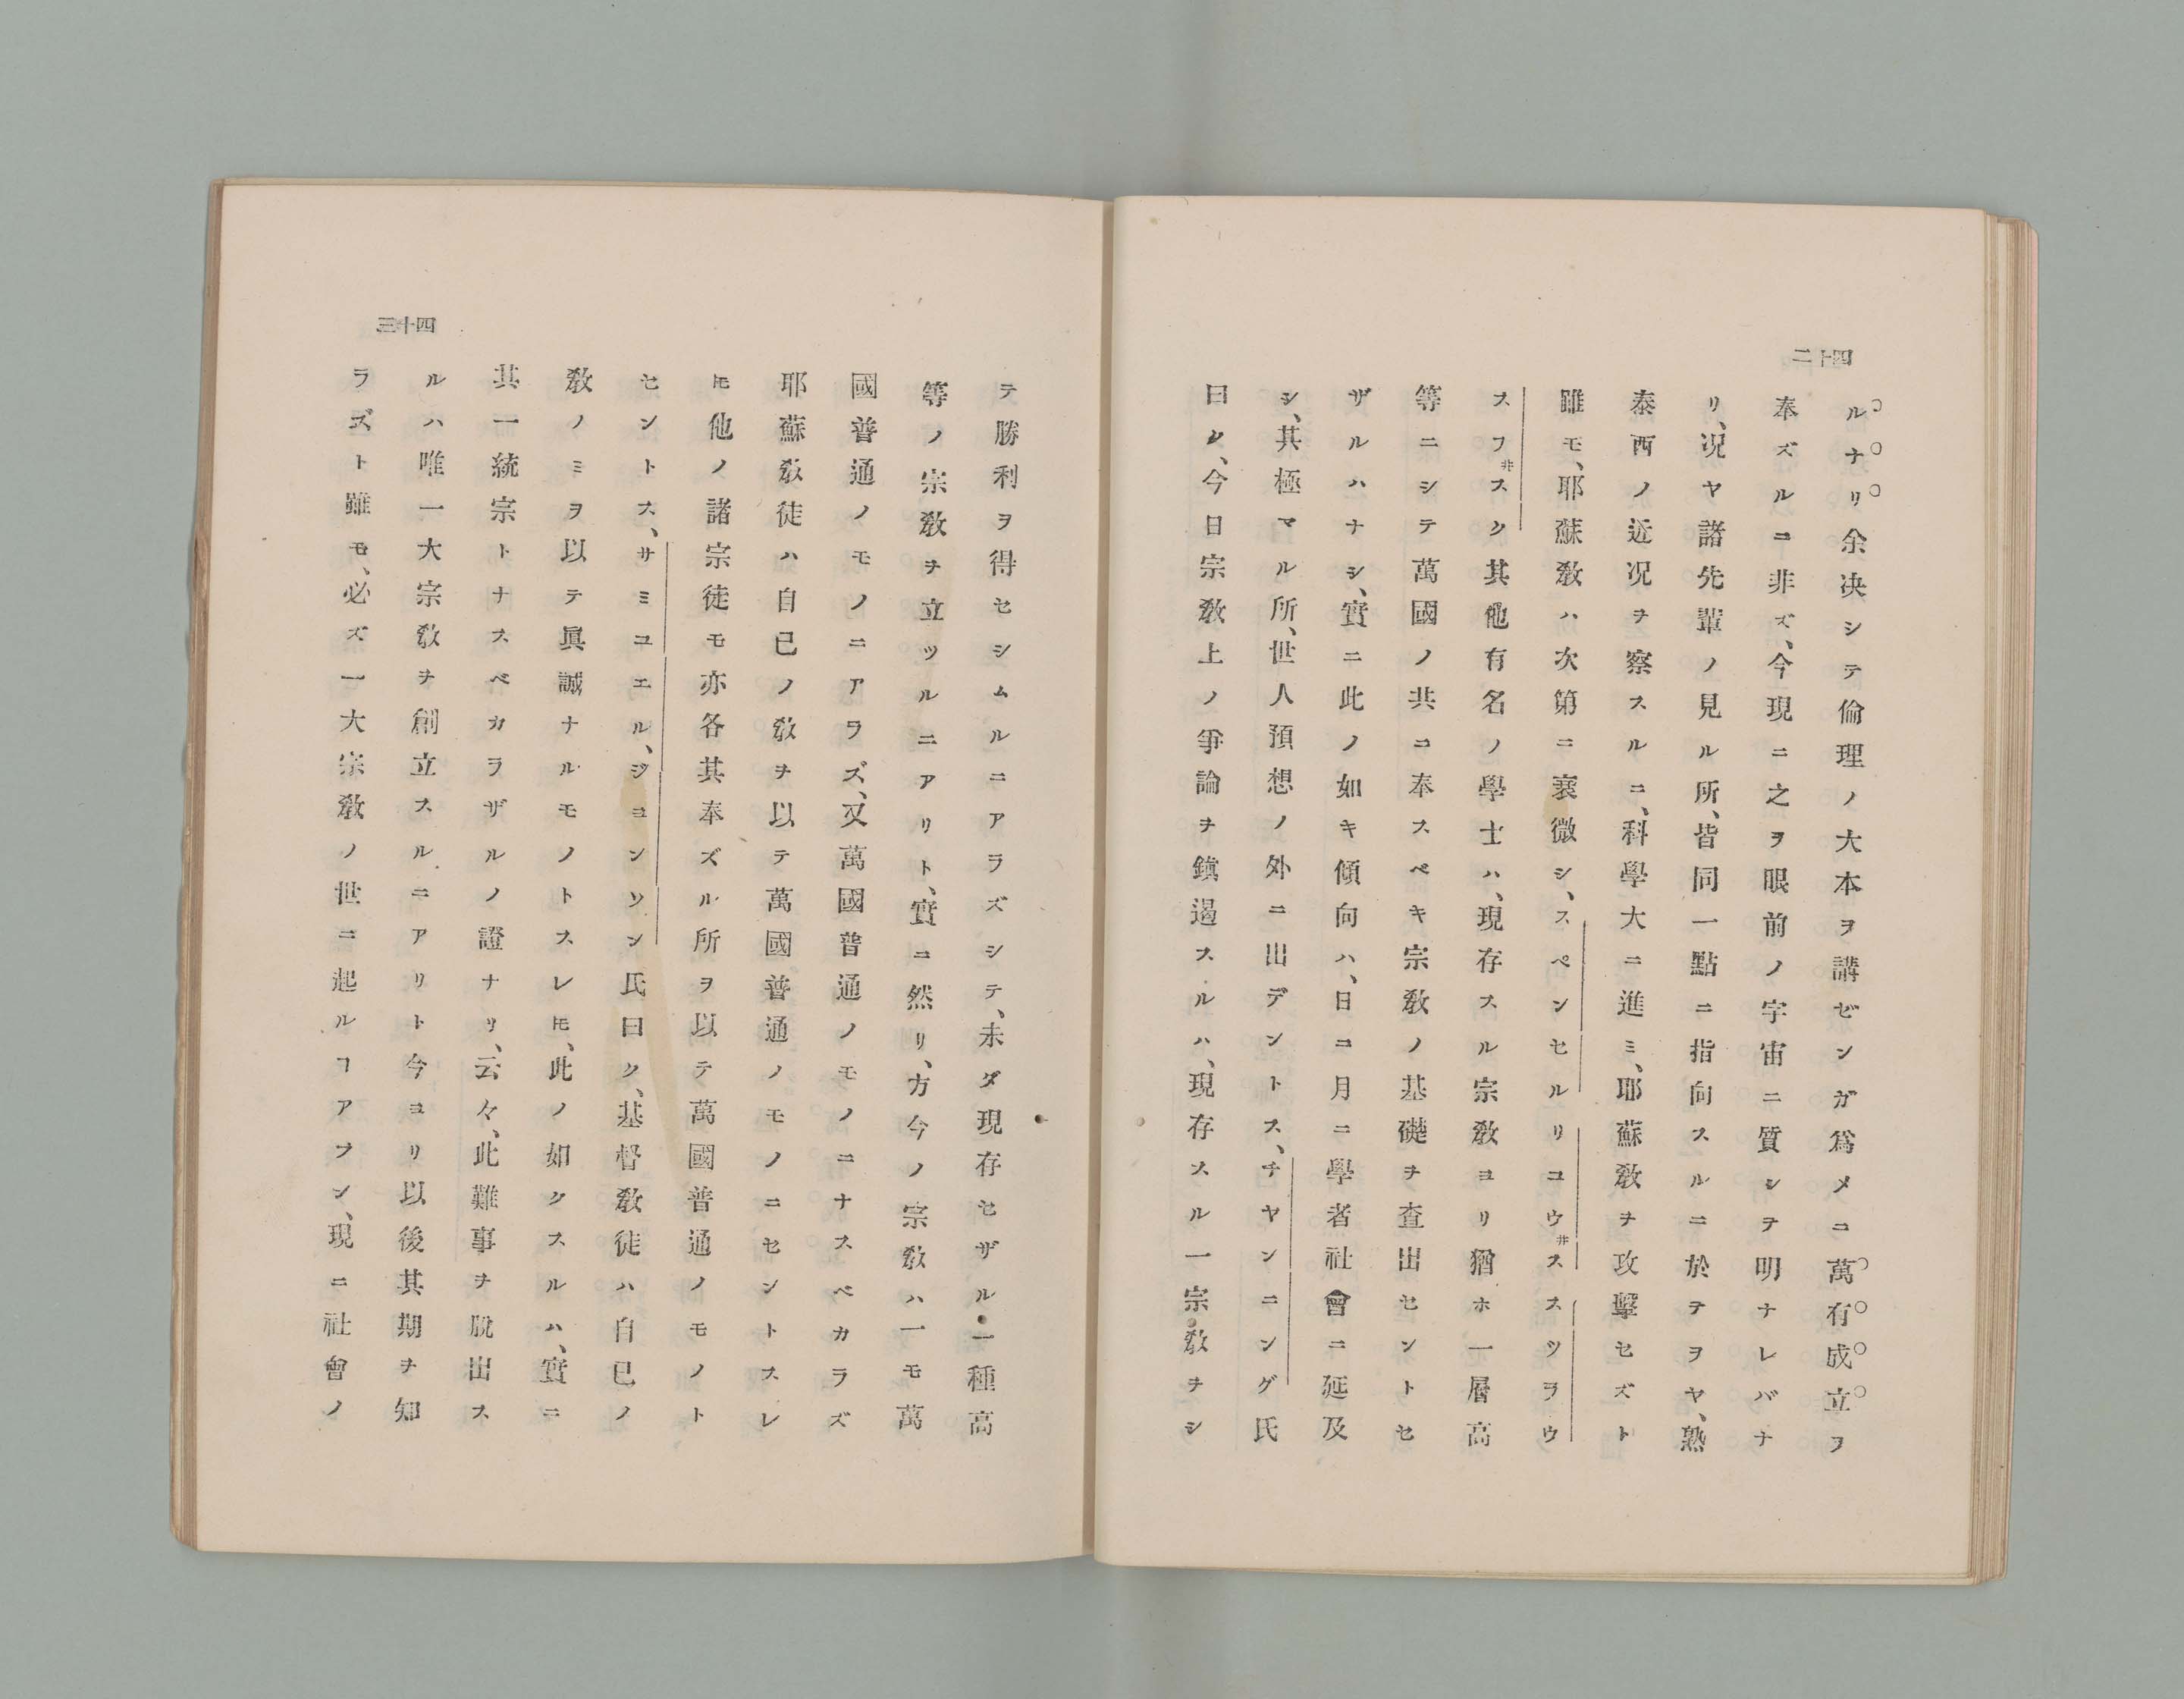 四十二
ルナリ余決シテ倫理ノ大本ヲ講ゼンガ爲メニ萬有成立ヲ
奉ズルニ非ズ、今現ニ之ヲ眼前ノ宇宙ニ質シテ明ナレバナ
リ、况ヤ諸先輩ノ見ル所、皆同一點ニ指向スルニ於テヲヤ、熟
泰西ノ近况ヲ察スルニ、科學大ニ進ミ、耶蘇敎ヲ攻擊セズト
雖モ、耶蘇敎ハ次第ニ衰微シ、スペンセルリユウ井ススツラウ
スフ井スク其他有名ノ學士ハ、現存スル宗敎ヨリ猶ホ一層高
等ニシテ萬國ノ共ニ奉スベキ宗敎ノ基礎ヲ査出セントセ
ザルハナシ、實ニ此ノ如キ傾向ハ、日ニ月ニ學者社會ニ延及
シ、其極マル所、世人預想ノ外ニ出デントス、チヤンニング氏
曰ク、今日宗敎上ノ爭論ヲ鎭遏スルハ、現存スル一宗敎ヲシ
四十三
テ勝利ヲ得セシムルニアラズシテ、未ダ現存セザル一種高
等ノ宗敎ヲ立ツルニアリト、實ニ然リ、方今ノ宗敎ハ一モ萬
國普通ノモノニアラズ、又萬國普通ノモノニナスベカラズ
耶蘇敎徒ハ自己ノ敎ヲ以テ萬國普通ノモノニセントスレ
𪜈他ノ諸宗徒モ亦各其奉ズル所ヲ以テ萬國普通ノモノト
セントス、サミユエル、ジヨンソン氏曰ク、基督敎徒ハ自己ノ
敎ノミヲ以テ眞誠ナルモノトスレ𪜈、此ノ如クスルハ、實ニ
其一統宗トナスベカラザルノ證ナリ、云々、此難事ヲ脫出ス
ルハ唯一大宗敎ヲ創立スルニアリト今ヨリ以後其期ヲ知
ラズト雖モ、必ズ一大宗敎ノ世ニ起ルヿアラン、現ニ社會ノ